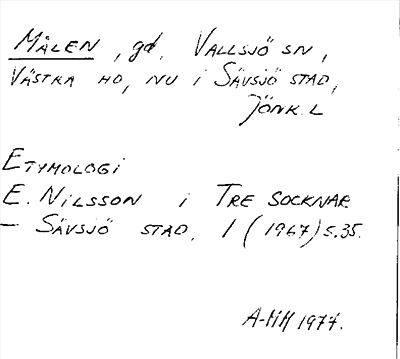 MÅLEN, gd, VALLSJÖ SN,
VÄSTRA HD, NU I SÄVSJÖ STAD,
JÖNK. L
ETYMOLOGI
E. NILSSON i TRE SOCKNAR
– SÄVSJÖ STAD. 1 (1967) s. 35.
A-MH 1974.